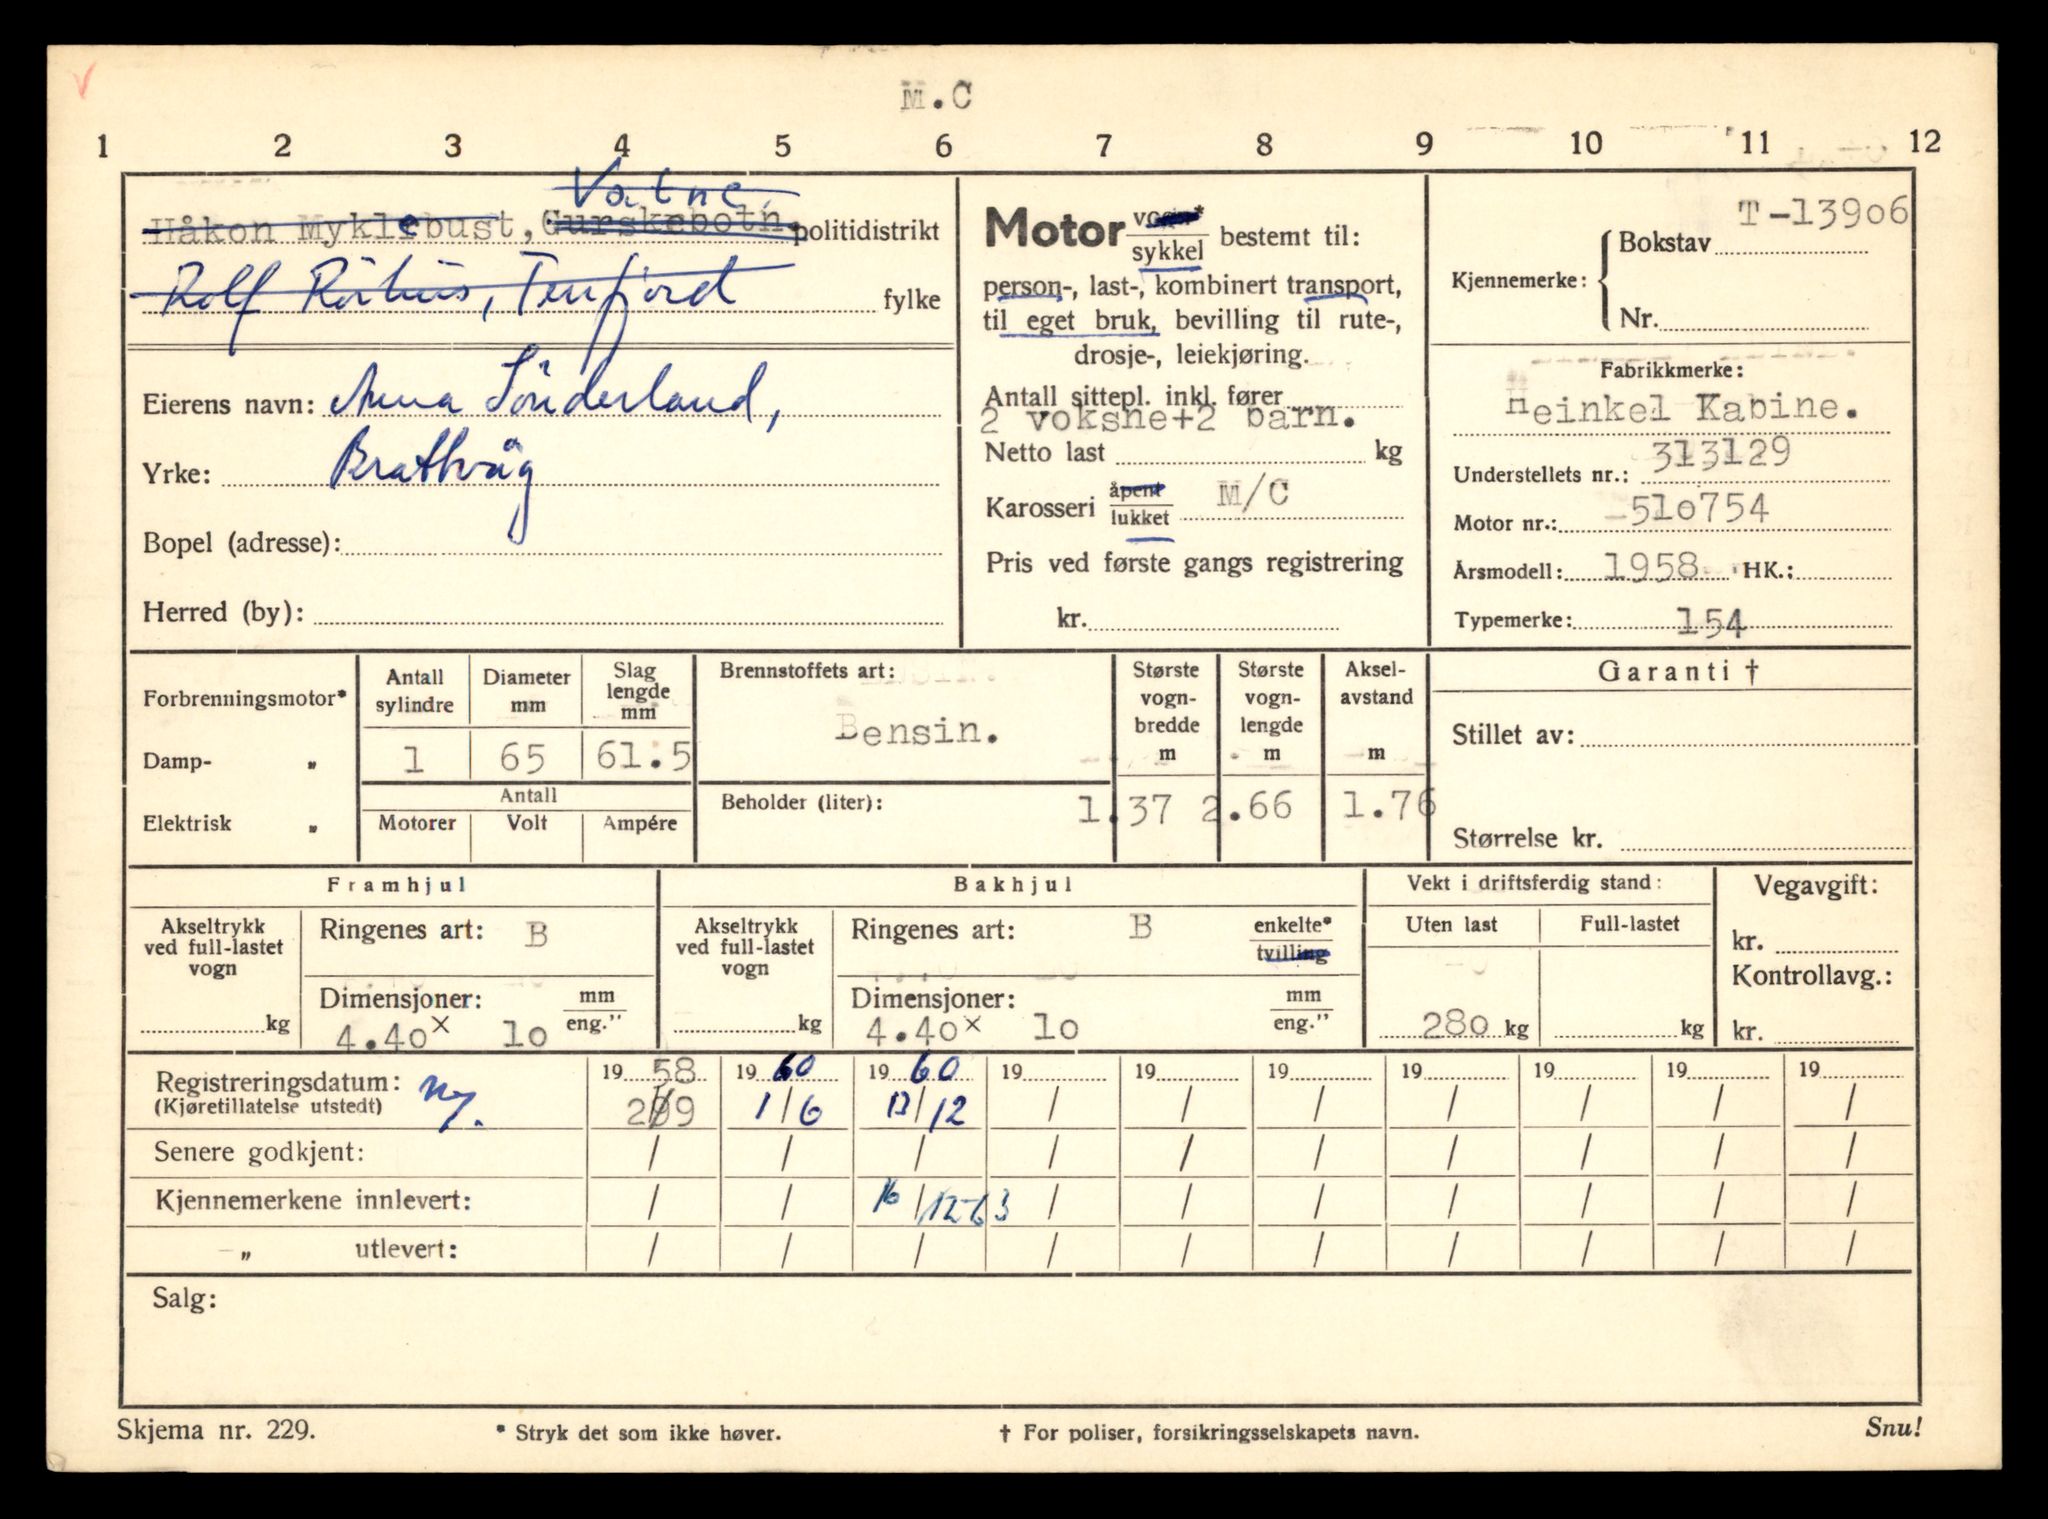 M.C
1 2 3 4 5 6 7 8 9 10 11 12
Vatne.
Håkon Myklebust, Gurskebotn. politidistrikt
Rolf Rörhus, Tenfjord fylke
Eierens navn: Anna Sönderland,
Yrke: Brattvåg
Bopel (adresse):
Herred (by):
Motor vogn* / sykkel bestemt til:
person-, last-, kombinert transport,
til eget bruk, bevilling til rute-,
drosje-, leiekjøring.
Antall sittepl. inkl. fører
2 voksne+2 barn.
Netto last kg
Karosseri åpent / lukket M/C
Pris ved første gangs registrering
kr.
T-13906
Kjennemerke: Bokstav
Nr.
Fabrikkmerke:
Heinkel Kabine.
Understellets nr.: 313129
Motor nr.: 510754
Årsmodell: 1958 HK.:
Typemerke: 154
Forbrenningsmotor*
Damp- „
Elektrisk „
Antall sylindre
Diameter mm
Slag lengde mm
1 65 61.5
Antall
Motorer Volt Ampére
Brennstoffets art:
Bensin.
Beholder (liter):
Største vogn-bredde m
Største vogn-lengde m
Aksel-avstand m
1.37 2.66 1.76
Garanti †
Stillet av:
Størrelse kr.
Framhjul
Akseltrykk ved full-lastet vogn
kg
Ringenes art: B
Dimensjoner: mm / eng."
4.40x 10
Bakhjul
Akseltrykk ved full-lastet vogn
kg
Ringenes art: B enkelte* / tvilling
Dimensjoner: mm / eng."
4.40x 10
Vekt i driftsferdig stand:
Uten last Full-lastet
280 kg kg
Vegavgift:
kr.
Kontrollavg.:
kr.
Registreringsdatum: ny. 19 58 19 60 19 60 19 19 19 19 19 19 19
(Kjøretillatelse utstedt) 2/9 1/6 13/12 / / / / / / /
Senere godkjent: / / / / / / / / / /
Kjennemerkene innlevert: / / 16/12-63 / / / / / / /
-„ utlevert: / / / / / / / / / /
Salg:
Skjema nr. 229. * Stryk det som ikke høver. † For poliser, forsikringsselskapets navn. Snu!